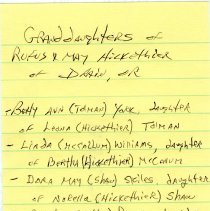 Granddaughters of
Rufus & May Hickethier
of Drain, OR
- Betty Ann (Toman) York, daughter
of Leona (Hickethier) Toman
- Linda (McCallum) Williams, daughter
of Bertha (Hickethier) McCallum
- Dora May (Shaw) Skiles, daughter
of Norella (Hickethier) Shaw